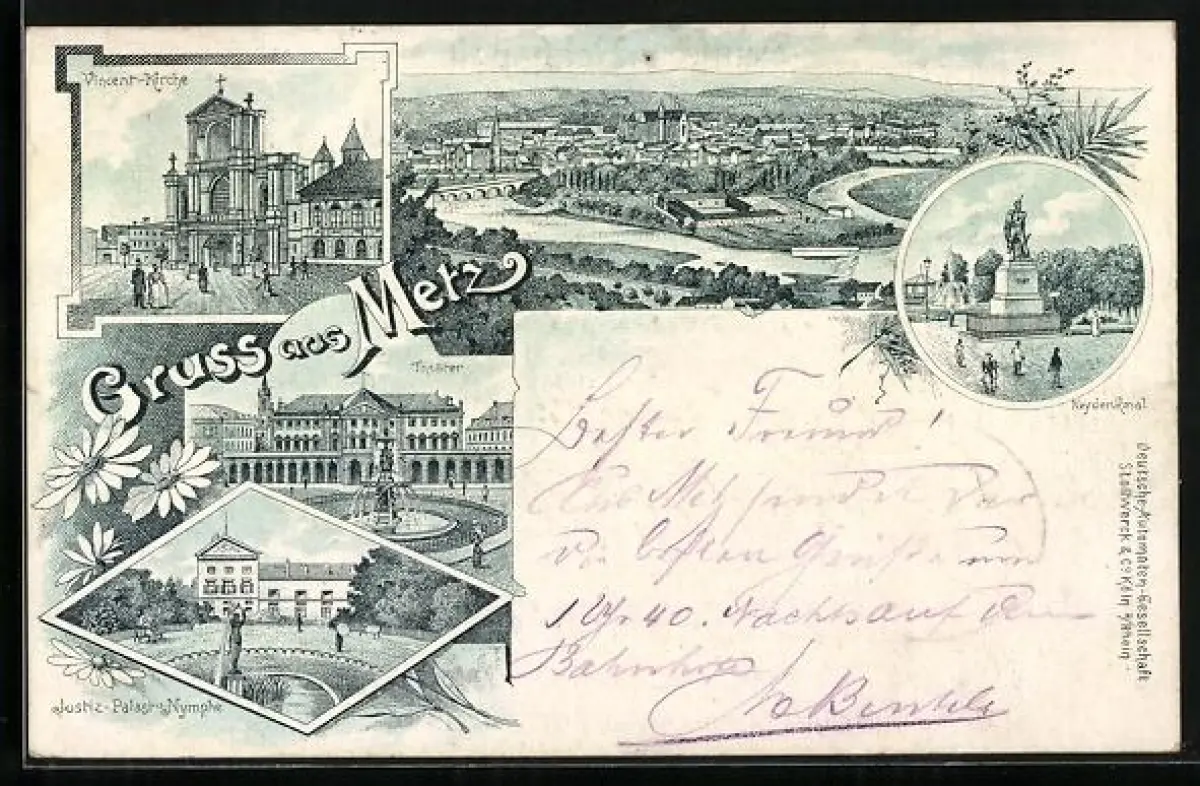 Vincent-Kirche
Gruss aus Metz
Theater
Neydenkmal
Justiz-Palast u. Nymphe
Deutsche Automaten-Gesellschaft
Stollwerck & Co. Köln a/Rhein
Bester Freund!
Aus Metz sendet Dir
die besten Grüße um
1 Uhr 40. Nachts auf dem
Bahnhofe